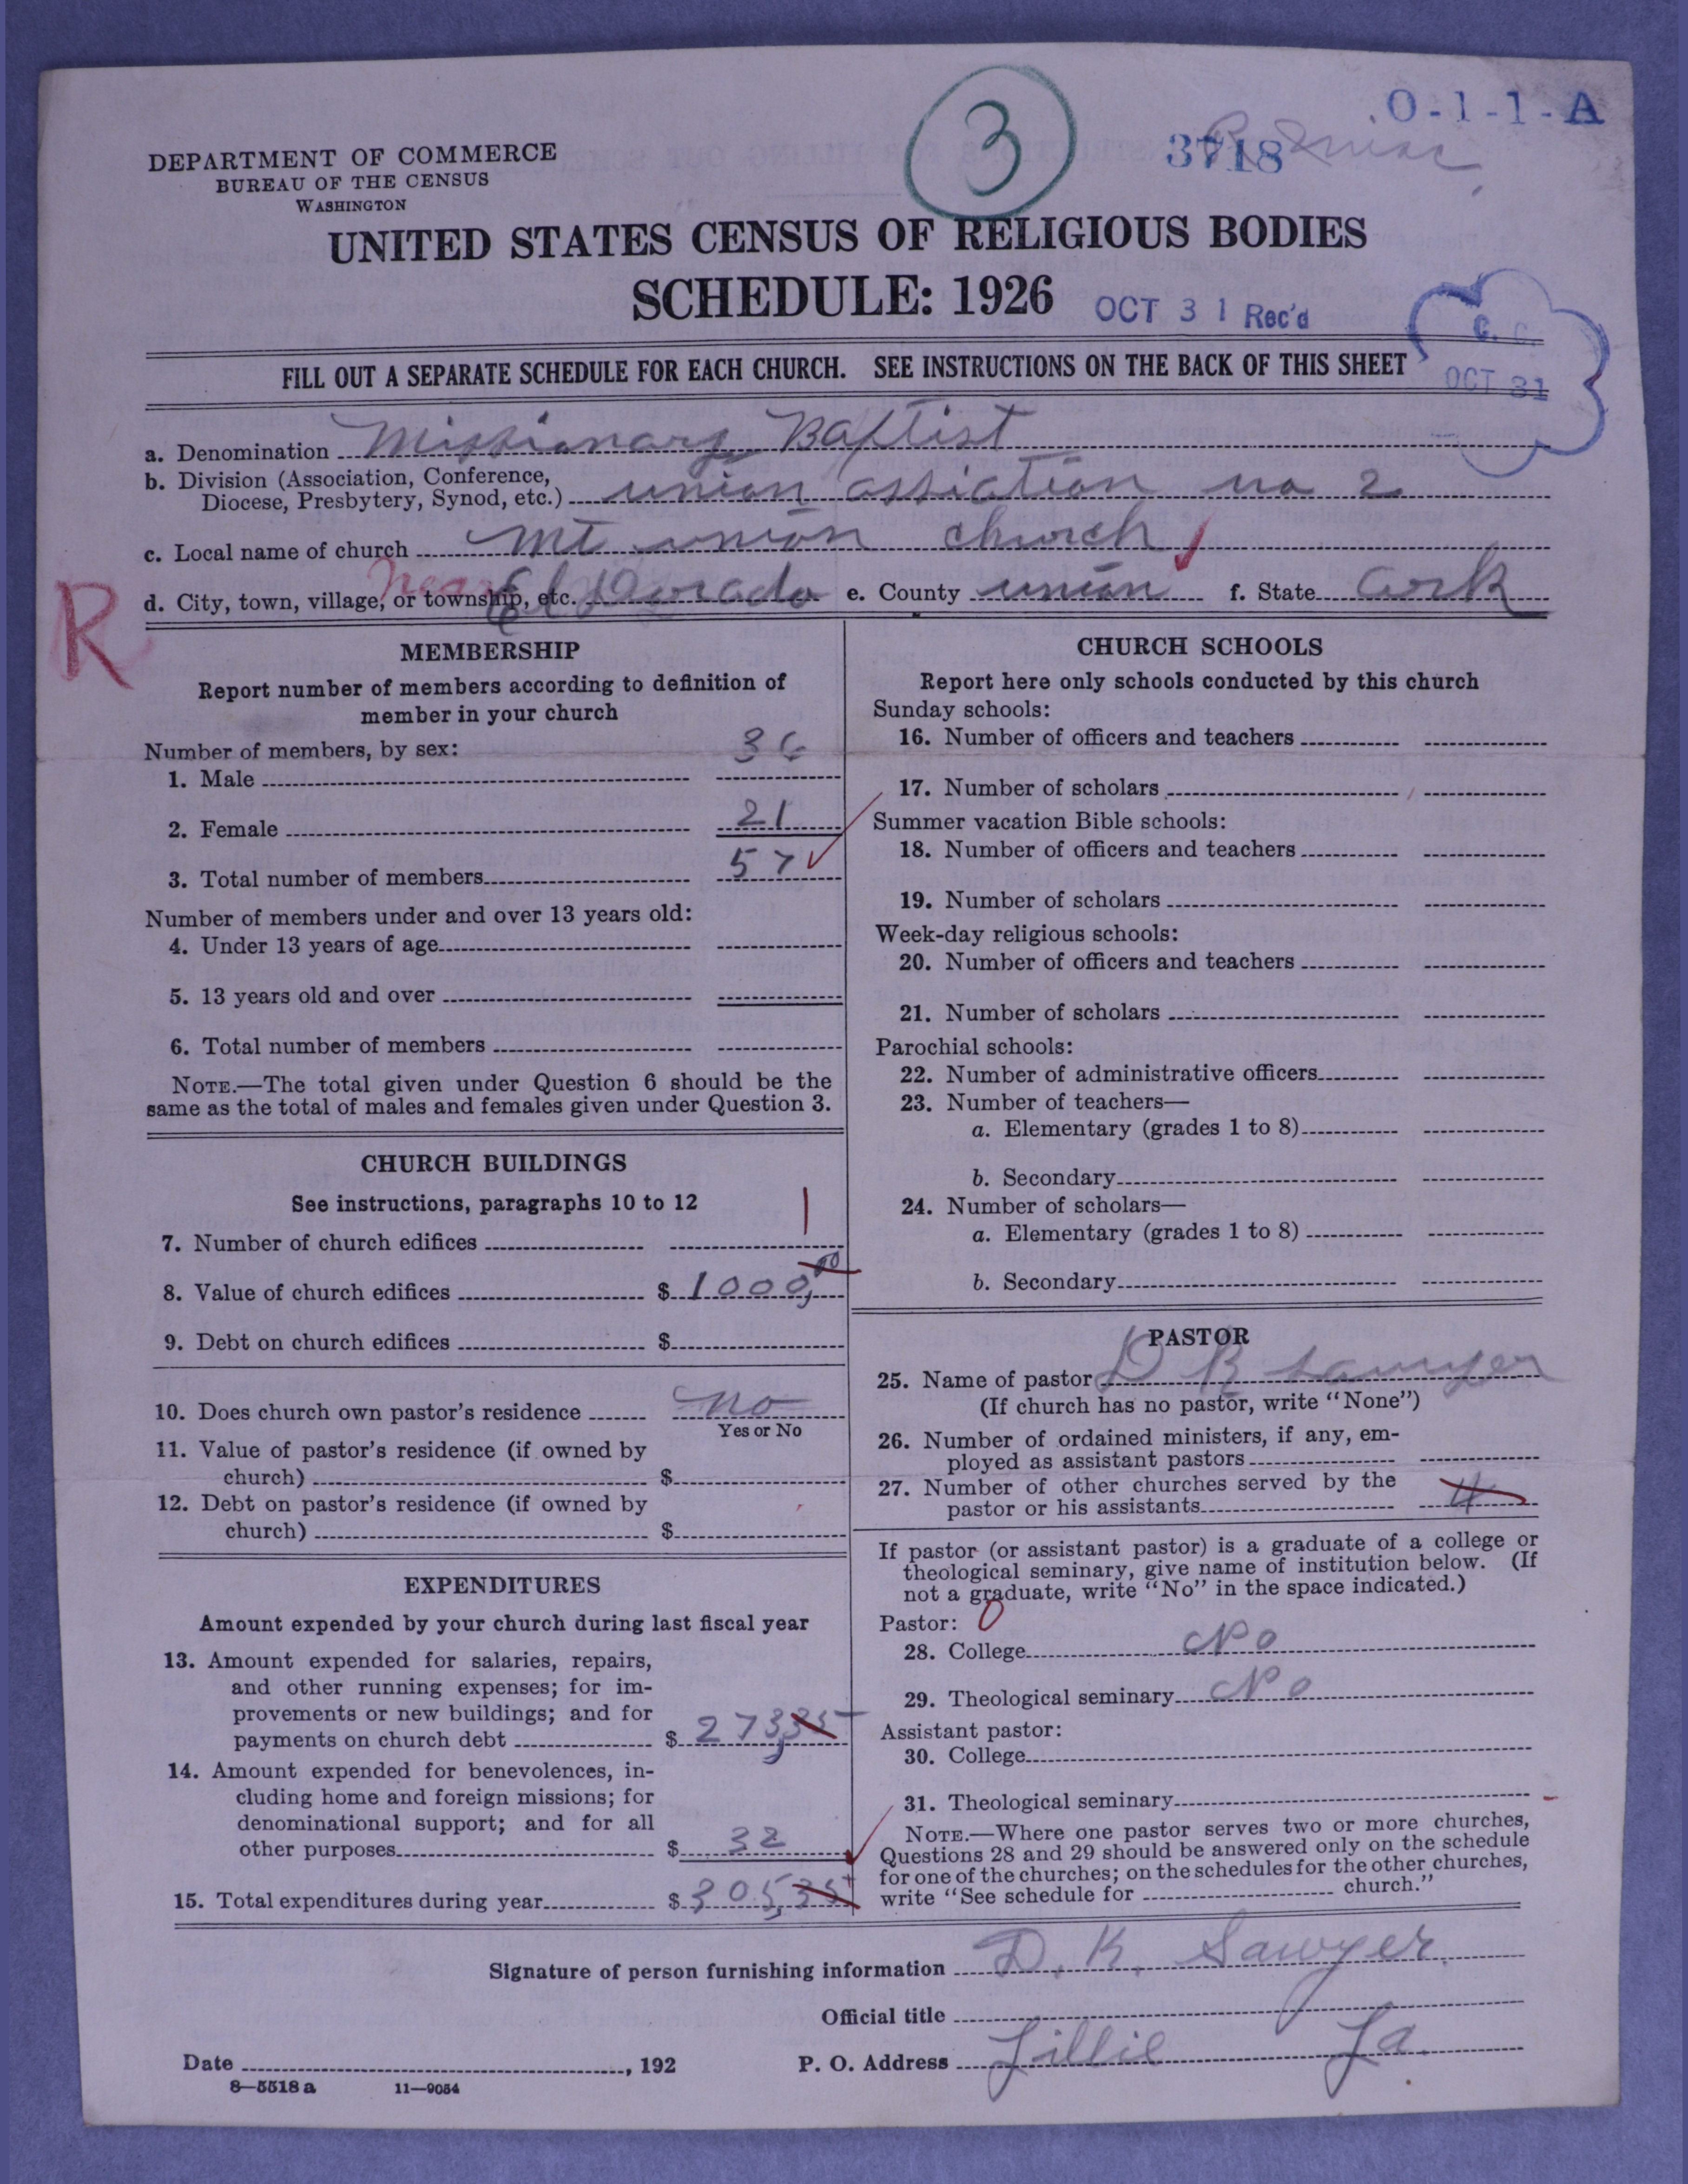 O-1-1-A
3
3718
DEPARTMENT OF COMMERCE
BUREAU OF THE CENSUS
WASHINGTON
UNITED STATES CENSUS OF RELIGIOUS BODIES
SCHEDULE: 1926
OCT 31 Rec'd
C. C.
OCT 31
FILL OUT A SEPARATE SCHEDULE FOR EACH CHURCH. SEE INSTRUCTIONS ON THE BACK OF THIS SHEET
a. Denomination Missionary Baptist
b. Division (Association, Conference,
Diocese, Presbytery, Synod, etc.) union assiation no 2
c. Local name of church Mt union church
R
d. City, town, village, or township, etc. near El Dorado e. County union f. State Ark
MEMBERSHIP
Report number of members according to definition of
member in your church
Number of members, by sex:
1. Male 36
2. Female 21
3. Total number of members 57
Number of members under and over 13 years old:
4. Under 13 years of age
5. 13 years old and over
6. Total number of members
NOTE.—The total given under Question 6 should be the
same as the total of males and females given under Question 3.
CHURCH BUILDINGS
See instructions, paragraphs 10 to 12
7. Number of church edifices 1
8. Value of church edifices $ 1000,00
9. Debt on church edifices $
10. Does church own pastor's residence no
Yes or No
11. Value of pastor's residence (if owned by
church) $
12. Debt on pastor's residence (if owned by
church) $
EXPENDITURES
Amount expended by your church during last fiscal year
13. Amount expended for salaries, repairs,
and other running expenses; for im-
provements or new buildings; and for
payments on church debt $ 273,35
14. Amount expended for benevolences, in-
cluding home and foreign missions; for
denominational support; and for all
other purposes $ 32
15. Total expenditures during year $ 305,35
CHURCH SCHOOLS
Report here only schools conducted by this church
Sunday schools:
16. Number of officers and teachers
17. Number of scholars
Summer vacation Bible schools:
18. Number of officers and teachers
19. Number of scholars
Week-day religious schools:
20. Number of officers and teachers
21. Number of scholars
Parochial schools:
22. Number of administrative officers
23. Number of teachers—
a. Elementary (grades 1 to 8)
b. Secondary
24. Number of scholars—
a. Elementary (grades 1 to 8)
b. Secondary
PASTOR
25. Name of pastor D K Sawyer
(If church has no pastor, write "None")
26. Number of ordained ministers, if any, em-
ployed as assistant pastors
27. Number of other churches served by the
pastor or his assistants 4
If pastor (or assistant pastor) is a graduate of a college or
theological seminary, give name of institution below. (If
not a graduate, write "No" in the space indicated.)
Pastor: 0
28. College No
29. Theological seminary No
Assistant pastor:
30. College
31. Theological seminary
NOTE.—Where one pastor serves two or more churches,
Questions 28 and 29 should be answered only on the schedule
for one of the churches; on the schedules for the other churches,
write "See schedule for church."
Signature of person furnishing information D. K. Sawyer
Official title
Date , 192 P. O. Address Lillie La.
8—5518 a 11—9054